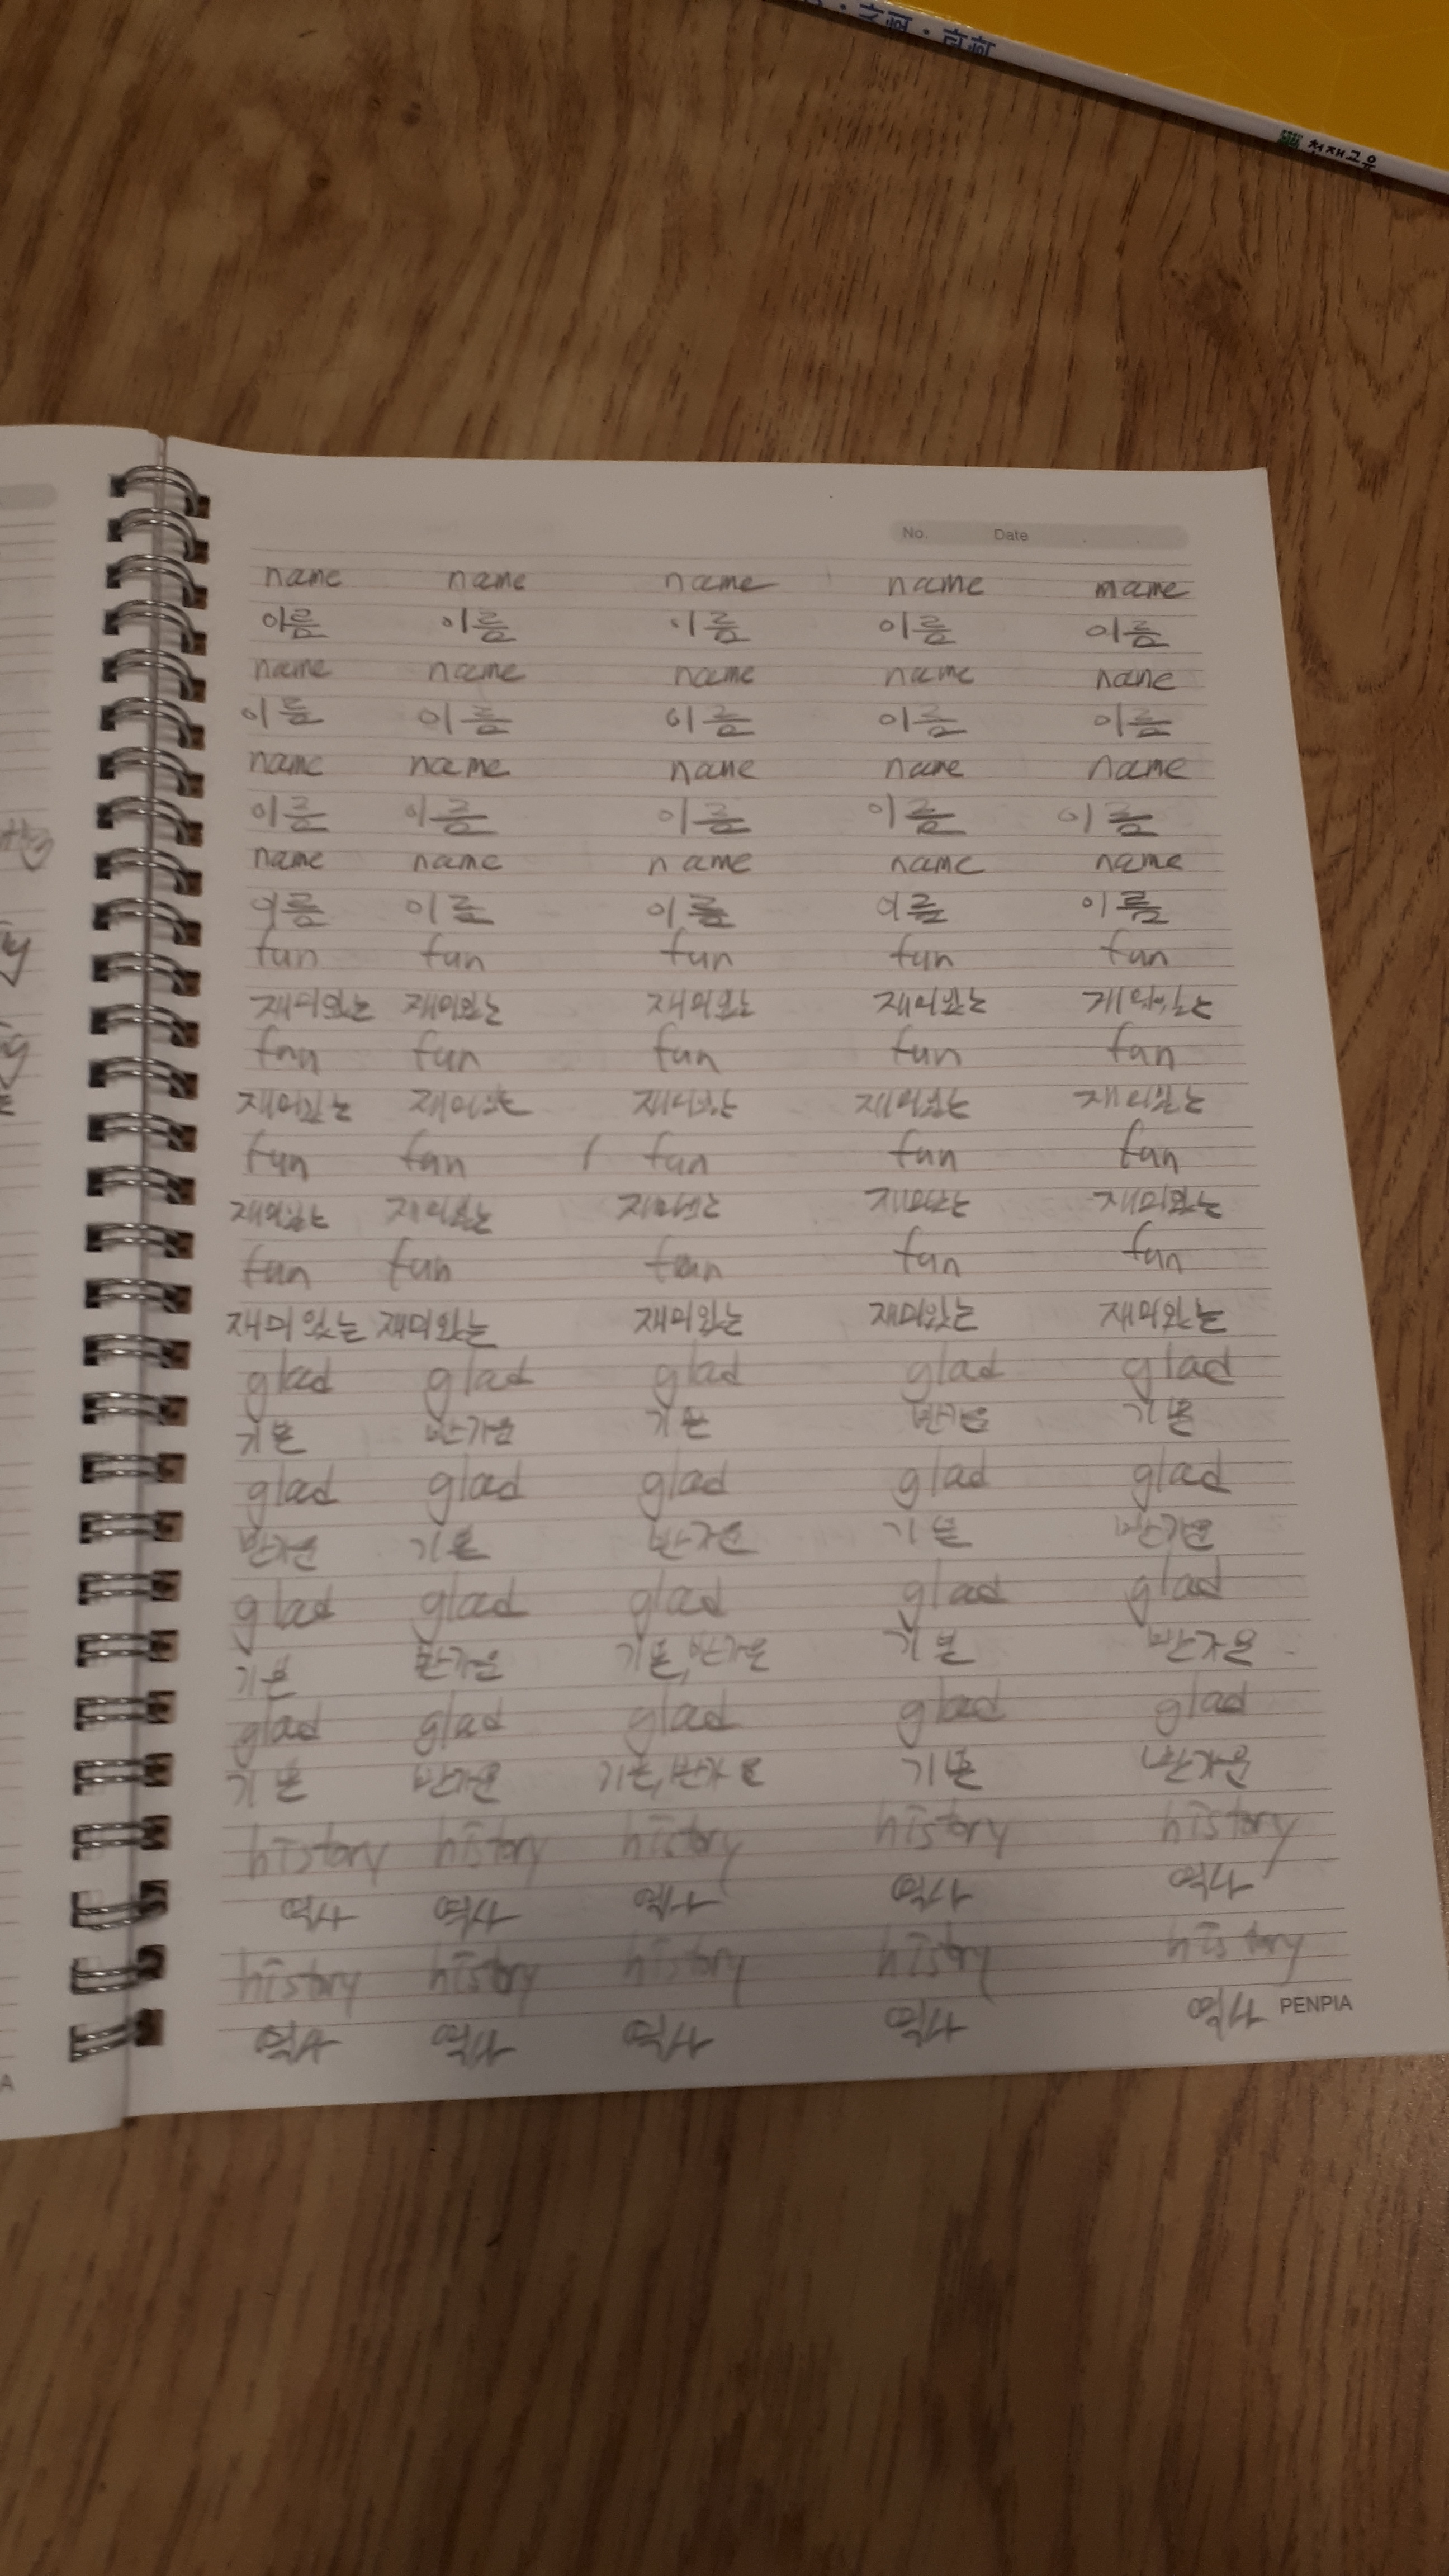 천재교육
No. Date
name name name name name
이름 이름 이름 이름 이름
name name name name name
이름 이름 이름 이름 이름
name name name name name
이름 이름 이름 이름 이름
name name name name name
이름 이름 이름 이름 이름
fun fun fun fun fun
재미있는 재미있는 재미있는 재미있는 재미있는
fun fun fun fun fun
재미있는 재미있는 재미있는 재미있는 재미있는
fun fun fun fun fun
재미있는 재미있는 재미있는 재미있는 재미있는
fun fun fun fun fun
재미있는 재미있는 재미있는 재미있는 재미있는
glad glad glad glad glad
기쁜 반가운 기쁜 반가운 기쁜
glad glad glad glad glad
반가운 기쁜 반가운 기쁜 반가운
glad glad glad glad glad
기쁜 반가운 기쁜,반가운 기쁜 반가운
glad glad glad glad glad
기쁜 반가운 기쁜,반가운 기쁜 반가운
history history history history history
역사 역사 역사 역사 역사
history history history history history
역사 역사 역사 역사 역사
PENPIA